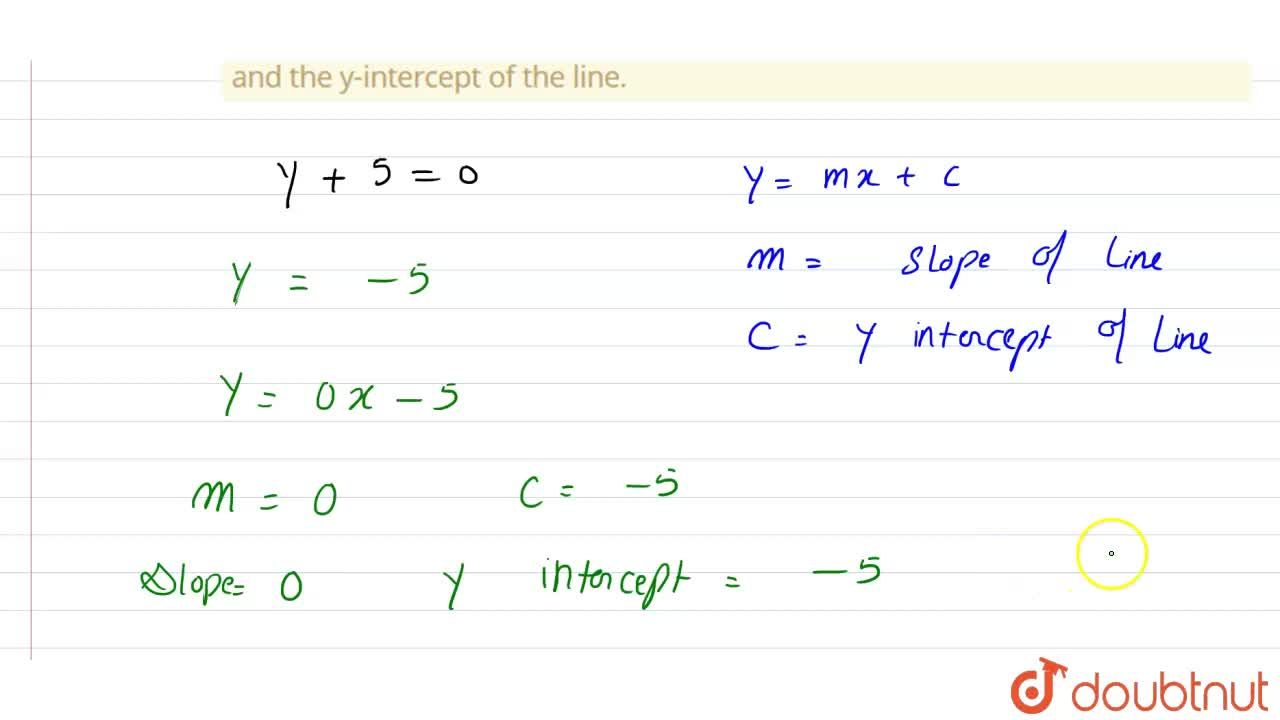 and the y-intercept of the line.
y + 5 = 0
y = -5
y = 0x - 5
m = 0 c = -5
Slope= 0 y intercept = -5
y = mx + c
m = slope of line
c = y intercept of line
doubtnut